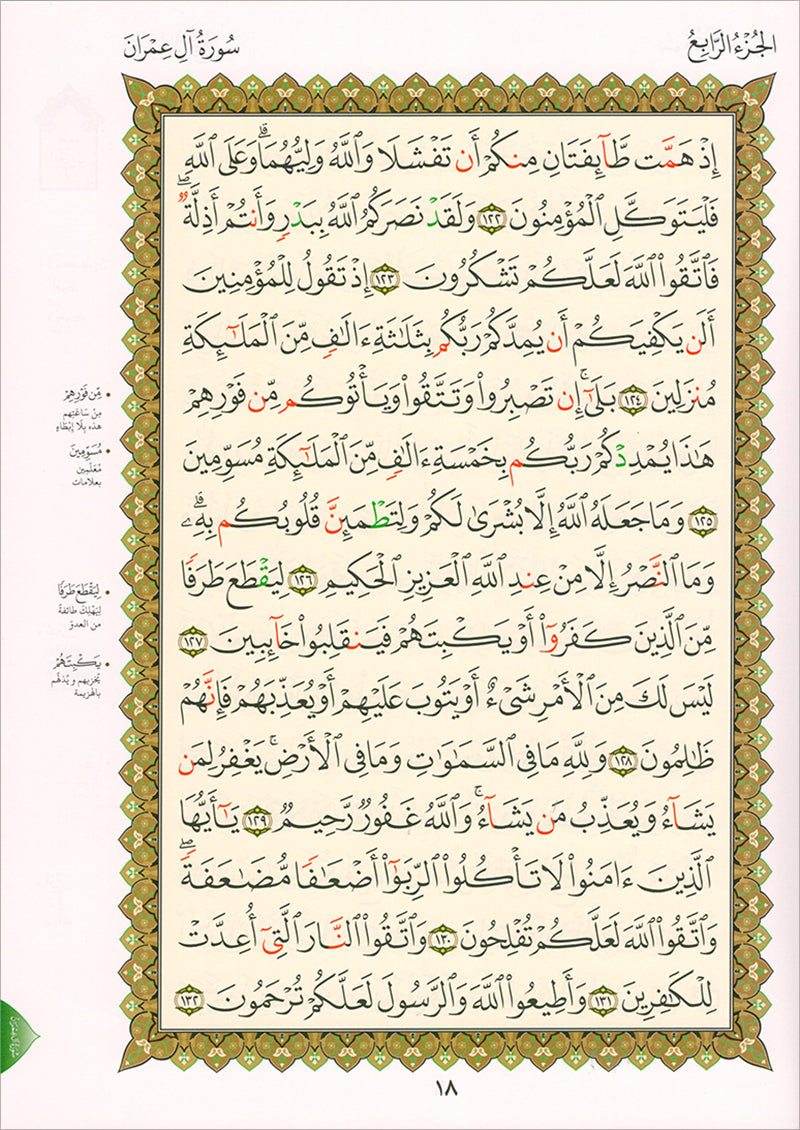 الجُزْءُ الرَّابِعُ
سُورَةُ آلِ عِمْرَانَ
إِذْ هَمَّت طَّآئِفَتَانِ مِنكُمْ أَن تَفْشَلَا وَٱللَّهُ وَلِيُّهُمَا ۗ وَعَلَى ٱللَّهِ
فَلْيَتَوَكَّلِ ٱلْمُؤْمِنُونَ ١٢٢ وَلَقَدْ نَصَرَكُمُ ٱللَّهُ بِبَدْرٍ وَأَنتُمْ أَذِلَّةٌ ۖ
فَٱتَّقُوا۟ ٱللَّهَ لَعَلَّكُمْ تَشْكُرُونَ ١٢٣ إِذْ تَقُولُ لِلْمُؤْمِنِينَ
أَلَن يَكْفِيَكُمْ أَن يُمِدَّكُمْ رَبُّكُم بِثَلَـٰثَةِ ءَالَـٰفٍ مِّنَ ٱلْمَلَـٰٓئِكَةِ
مُنزَلِينَ ١٢٤ بَلَىٰٓ ۚ إِن تَصْبِرُوا۟ وَتَتَّقُوا۟ وَيَأْتُوكُم مِّن فَوْرِهِمْ
هَـٰذَا يُمْدِدْكُمْ رَبُّكُم بِخَمْسَةِ ءَالَـٰفٍ مِّنَ ٱلْمَلَـٰٓئِكَةِ مُسَوِّمِينَ
١٢٥ وَمَا جَعَلَهُ ٱللَّهُ إِلَّا بُشْرَىٰ لَكُمْ وَلِتَطْمَئِنَّ قُلُوبُكُم بِهِۦ ۗ
وَمَا ٱلنَّصْرُ إِلَّا مِنْ عِندِ ٱللَّهِ ٱلْعَزِيزِ ٱلْحَكِيمِ ١٢٦ لِيَقْطَعَ طَرَفًا
مِّنَ ٱلَّذِينَ كَفَرُوٓا۟ أَوْ يَكْبِتَهُمْ فَيَنقَلِبُوا۟ خَآئِبِينَ ١٢٧
لَيْسَ لَكَ مِنَ ٱلْأَمْرِ شَىْءٌ أَوْ يَتُوبَ عَلَيْهِمْ أَوْ يُعَذِّبَهُمْ فَإِنَّهُمْ
ظَـٰلِمُونَ ١٢٨ وَلِلَّهِ مَا فِى ٱلسَّمَـٰوَٰتِ وَمَا فِى ٱلْأَرْضِ ۚ يَغْفِرُ لِمَن
يَشَآءُ وَيُعَذِّبُ مَن يَشَآءُ ۚ وَٱللَّهُ غَفُورٌ رَّحِيمٌ ١٢٩ يَـٰٓأَيُّهَا
ٱلَّذِينَ ءَامَنُوا۟ لَا تَأْكُلُوا۟ ٱلرِّبَوٰٓا۟ أَضْعَـٰفًا مُّضَـٰعَفَةً ۖ
وَٱتَّقُوا۟ ٱللَّهَ لَعَلَّكُمْ تُفْلِحُونَ ١٣٠ وَٱتَّقُوا۟ ٱلنَّارَ ٱلَّتِىٓ أُعِدَّتْ
لِلْكَـٰفِرِينَ ١٣١ وَأَطِيعُوا۟ ٱللَّهَ وَٱلرَّسُولَ لَعَلَّكُمْ تُرْحَمُونَ ١٣٢
• مِّن فَوْرِهِمْ
مِنْ سَاعَتِهِم
هذه بِلَا إبْطَاءٍ
• مُسَوِّمِينَ
مُعَلِّمِين
بعلامات
• لِيَقْطَعَ طَرَفًا
لِيُهْلِكَ طائفةً
من العدوّ
• يَكْبِتَهُمْ
يُخْزيهم ويُذلّهم
بالهزيمة
١٨